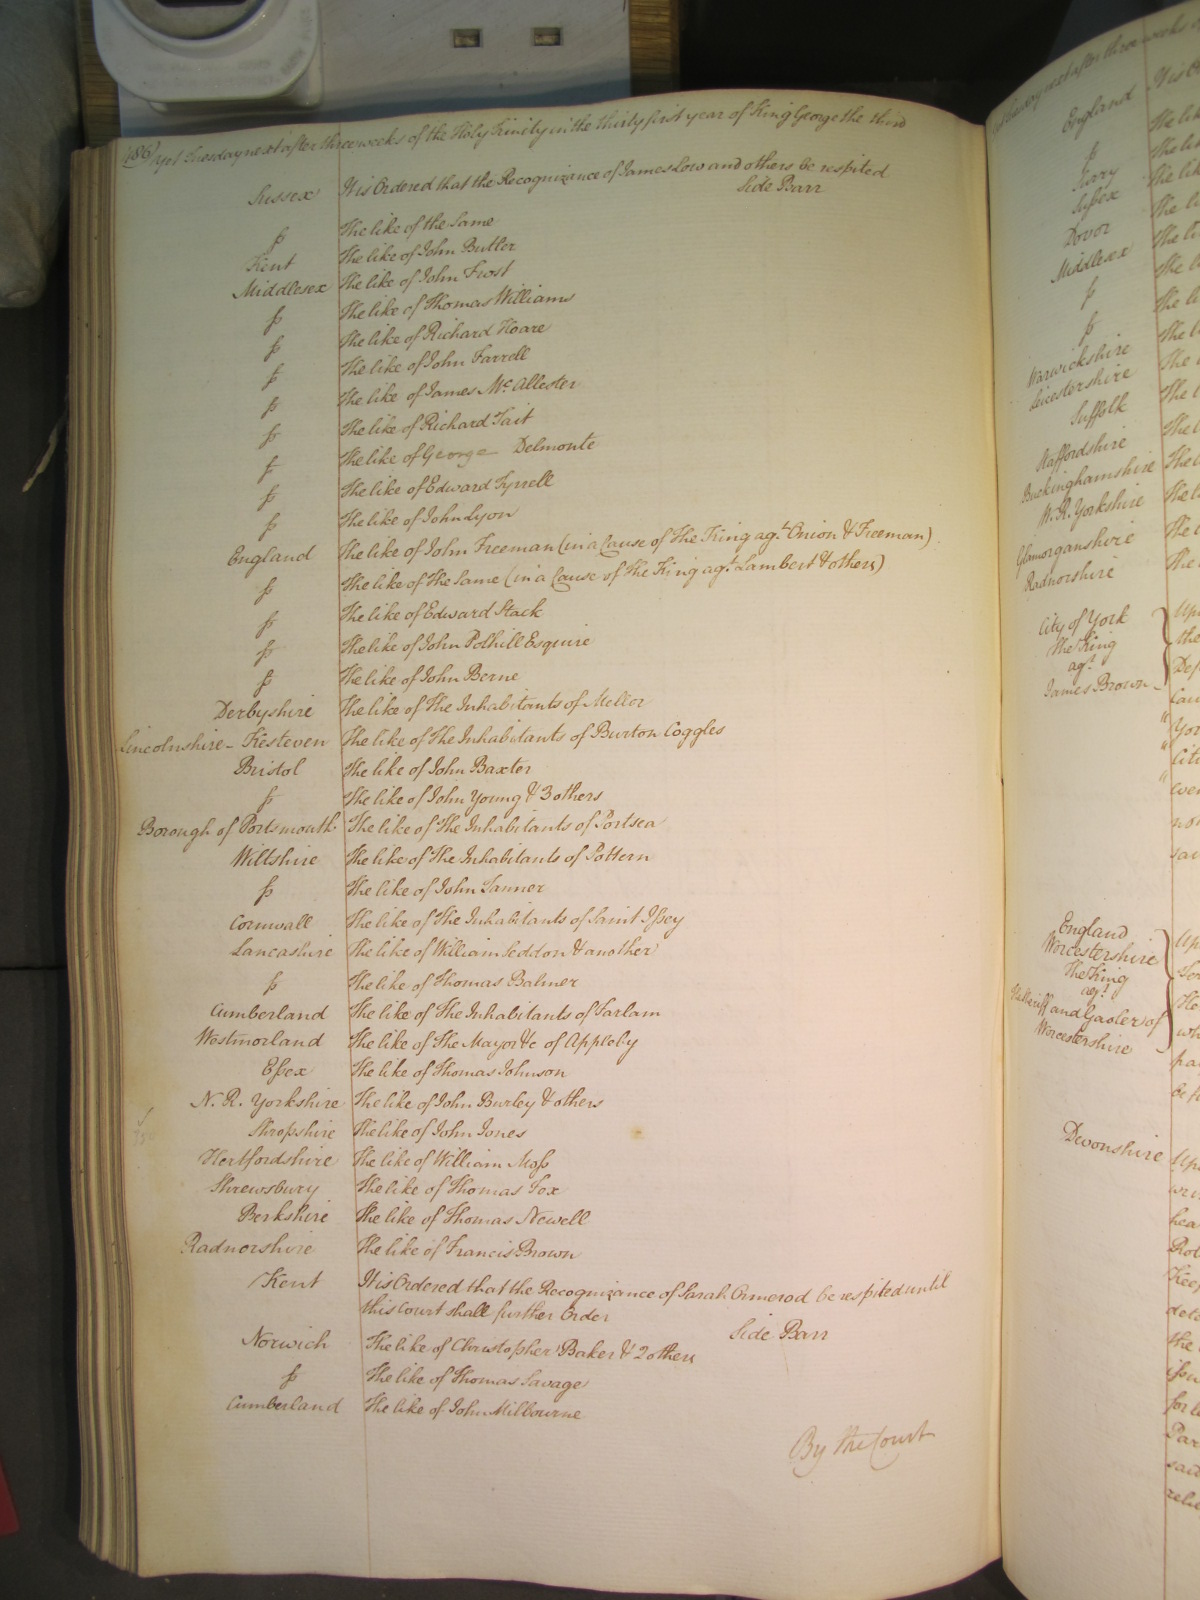 186 yet Tuesday next after three weeks of the Holy Trinity in the thirty first year of King George the third
Sussex It is Ordered that the Recognizance of James Low and others be respited
Side Barr
ſs The like of the Same
Kent The like of John Butler
Middlesex The like of John Frost
ſs The like of Thomas Williams
ſs The like of Richard Hoare
ſs The like of John Farrell
ſs The like of James McAllester
ſs The like of Richard Tait
ſs The like of George Delmonte
ſs The like of Edward Tyrrell
ſs The like of John Lyon
England The like of John Freeman (in a Cause of The King agt. Onion & Freeman)
ſs The like of The Same (in a Cause of The King agt. Lambert & others)
ſs The like of Edward Stack
ſs The like of John Polhill Esquire
ſs The like of John Berne
Derbyshire The like of The Inhabitants of Mellor
Lincolnshire - Kesteven The like of The Inhabitants of Burton Coggles
Bristol The like of John Baxter
ſs The like of John Young & 3 others
Borough of Portsmouth The like of The Inhabitants of Portsea
Wiltshire The like of The Inhabitants of Pottern
ſs The like of John Tanner
Cornwall The like of The Inhabitants of Saint Iſsey
Lancashire The like of William Seddon & another
ſs The like of Thomas Balmer
Cumberland The like of The Inhabitants of Farlam
Westmorland The like of The Mayor &c of Appleby
Eſsex The like of Thomas Johnson
N. R. Yorkshire The like of John Burley & others
Shropshire The like of John Jones
Hertfordshire The like of William Moſs
Shrewsbury The like of Thomas Fox
Berkshire The like of Thomas Newell
Radnorshire The like of Francis Brown
Kent It is Ordered that the Recognizance of Sarah Ormerod be respited until
this Court shall further Order
Side Barr
Norwich The like of Christopher Baker & 2 others
ſs The like of Thomas Savage
Cumberland The like of John Milbourne
By the Court
England
ſs
Surry
Suſsex
Dovor
Middlesex
ſs
ſs
Warwickshire
Leicestershire
Suffolk
Staffordshire
Buckinghamshire
W. R. Yorkshire
Glamorganshire
Radnorshire
City of York
The King
agt.
James Brown
England
Worcestershire
The King
agt.
and Gaoler of
Worcestershire
Devonshire